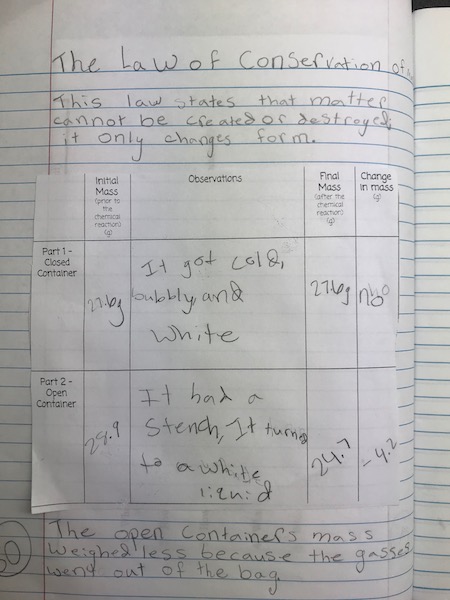 The Law of Conservation of
This law states that matter
cannot be created or destroyed,
it only changes form.
Initial Mass (prior to the chemical reaction) (g)
Observations
Final Mass (after the chemical reaction) (g)
Change in mass (g)
Part 1 - Closed Container
27.6g
It got cold,
bubbly, and
white
27.6g
no
Part 2 - Open Container
It had a
Stench, It turned
to a white
liquid
24.7
-4.2
The open Containers mass
weighed less because the gasses
went out of the bag.